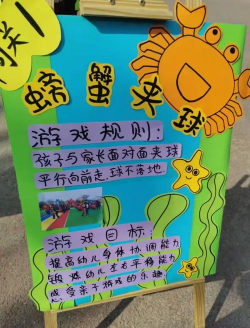 螃蟹夹球
游戏规则:
孩子与家长面对面夹球
平行向前走,球不落地
游戏目标:
提高幼儿身体协调能力
锻炼幼儿左右平稳能力
感受亲子游戏的乐趣